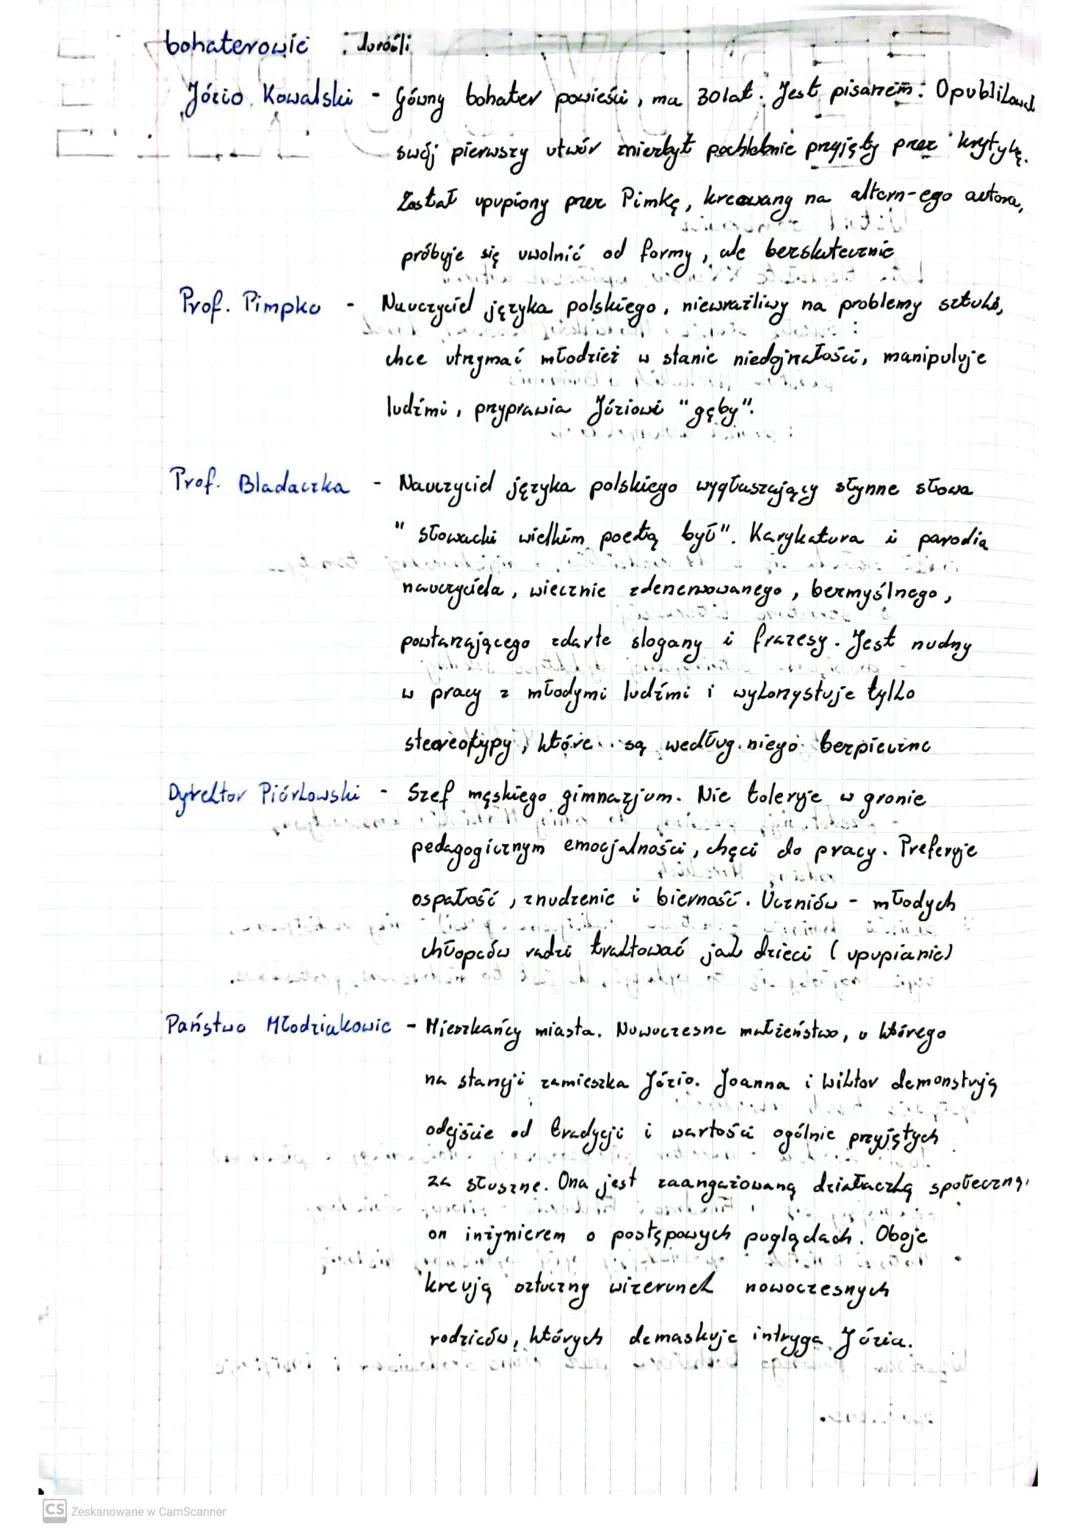 bohaterowie : dorośli
Józio Kowalski - Główny bohater powieści, ma 30 lat. Jest pisarzem. Opublikował
swój pierwszy utwór niezbyt pochlebnie przyjęty przez krytykę.
Został upupiony przez Pimkę, kreowany na altern-ego autora,
próbuje się uwolnić od formy, ale bezskutecznie
Prof. Pimpko - Nauczyciel języka polskiego, niewrażliwy na problemy sztuki,
chce utrzymać młodzież w stanie niedojrzałości, manipuluje
ludźmi, przyprawia Józiowi "gęby".
Prof. Bladaczka - Nauczyciel języka polskiego wygłaszający słynne słowa
"Słowacki wielkim poetą był". Karykatura i parodia
nauczyciela, wiecznie zdenerwowanego, bezmyślnego,
powtarzającego zdarte slogany i frazesy. Jest nudny
w pracy z młodymi ludźmi i wykorzystuje tylko
stereotypy, które są według niego bezpieczne
Dyrektor Piórkowski - Szef męskiego gimnazjum. Nie toleruje w gronie
pedagogicznym emocjalności, chęci do pracy. Preferuje
ospałość, znudzenie i bierność. Uczniów - młodych
chłopców radzi traktować jak dzieci (upupianie)
Państwo Młodziakowie - Mieszkańcy miasta. Nowoczesne małżeństwo, u którego
na stancji zamieszka Józio. Joanna i Wiktor demonstrują
odejście od tradycji i wartości ogólnie przyjętych
za słuszne. Ona jest zaangażowaną działaczką społeczną,
on inżynierem o postępowych poglądach. Oboje
kreują sztuczny wizerunek nowoczesnych
rodziców, których demaskuje intryga Józia.
CS Zeskanowane w CamScanner